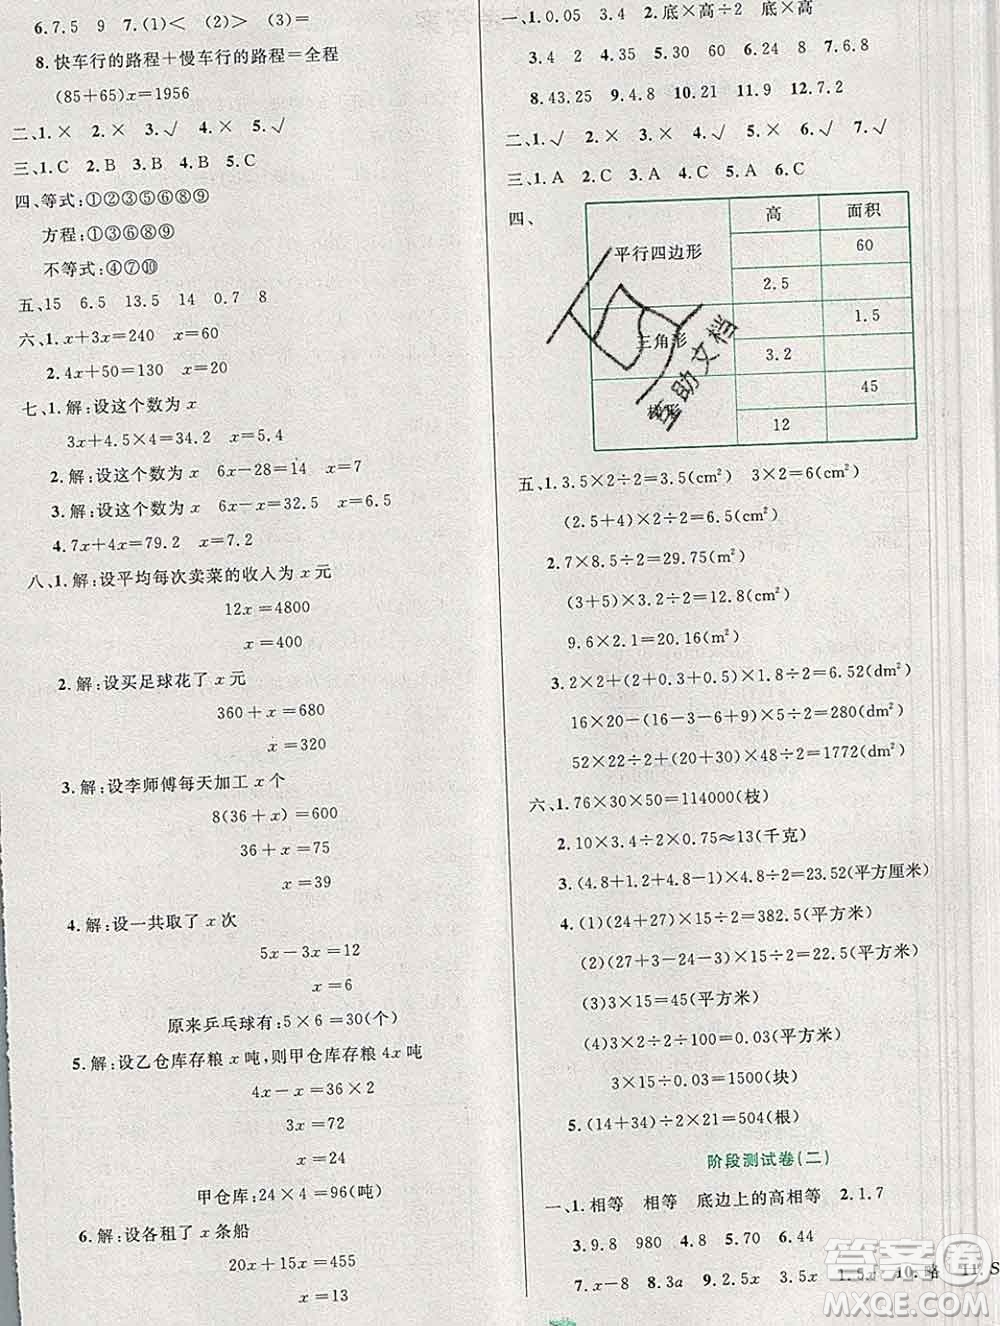 6.7.5 9 7.(1)< (2)> (3)=
8.快车行的路程+慢车行的路程=全程
(85+65)x=1956
二、1.× 2.× 3.√ 4.× 5.√
三、1.C 2.B 3.B 4.B 5.C
四、等式:①②③⑤⑥⑧⑨
方程:①③⑥⑧⑨
不等式:④⑦⑩
五、15 6.5 13.5 14 0.7 8
六、1.x+3x=240 x=60
2.4x+50=130 x=20
七、1.解:设这个数为x
3x+4.5×4=34.2 x=5.4
2.解:设这个数为x 6x-28=14 x=7
3.解:设这个数为x 6x-x=32.5 x=6.5
4.7x+4x=79.2 x=7.2
八、1.解:设平均每次卖菜的收人为x元
12x=4800
x=400
2.解:设买足球花了x元
360+x=680
x=320
3.解:设李师傅每天加工x个
8(36+x)=600
36+x=75
x=39
4.解:设一共取了x次
5x-3x=12
x=6
原来乒乓球有:5×6=30(个)
5.解:设乙仓库存粮x吨,则甲仓库存粮4x吨
4x-x=36×2
3x=72
x=24
甲仓库:24×4=96(吨)
6.解:设各租了x条船
20x+15x=455
x=13
一、1.0.05 3.4 2.底×高÷2 底×高
3.4 2 4.50 30 5.52 60 6.24 8 7.6.8
8.43.25 9.4.8 10.21 11.9 12.7.2
二、1.√ 2.× 3.× 4.× 5.× 6.√ 7.√
三、1.A 2.C 3.A 4.C 5.A 6.C
四、
高 面积
平行四边形 60
2.5
三角形 1.5
3.2
45
12
互助文档
五、1.3.5×2÷2=3.5(cm²) 3×2=6(cm²)
(2.5+4)×2÷2=6.5(cm²)
2.7×8.5÷2=29.75(m²)
(3+5)×3.2÷2=12.8(m²)
9.6×2.1=20.16(m²)
3.2×2+(2+0.3+0.5)×1.8÷2=6.52(dm²)
16×20-(16-6+9)×5÷2=272.5(dm²)
52×22÷2+(20+30)×48÷2=1772(dm²)
六、1.76×30×50=114000(枝)
2.10×3.4÷2×0.75≈13(千克)
3.(4.8+1.2+4.8-1)×4.8÷2=23.52(平方厘米)
4.(1)(24+27)×15÷2=382.5(平方米)
(2)(27+3-24-3)×15÷2=22.5(平方米)
(3)3×15=45(平方米)
(4)30×20÷2÷100÷100=0.03(平方米)
3×15÷0.03=1500(块)
5.(14+34)÷2×21=504(根)
阶段测试卷(二)
一、1.相等 相等 底边上的高相等 2.1.7
3.9.8 980 4.80 5.70 6.44
7.x-8 8.3a 9.2.5x 3.5x 1.5x 10.略 11.S
答案圈
MXQE.COM